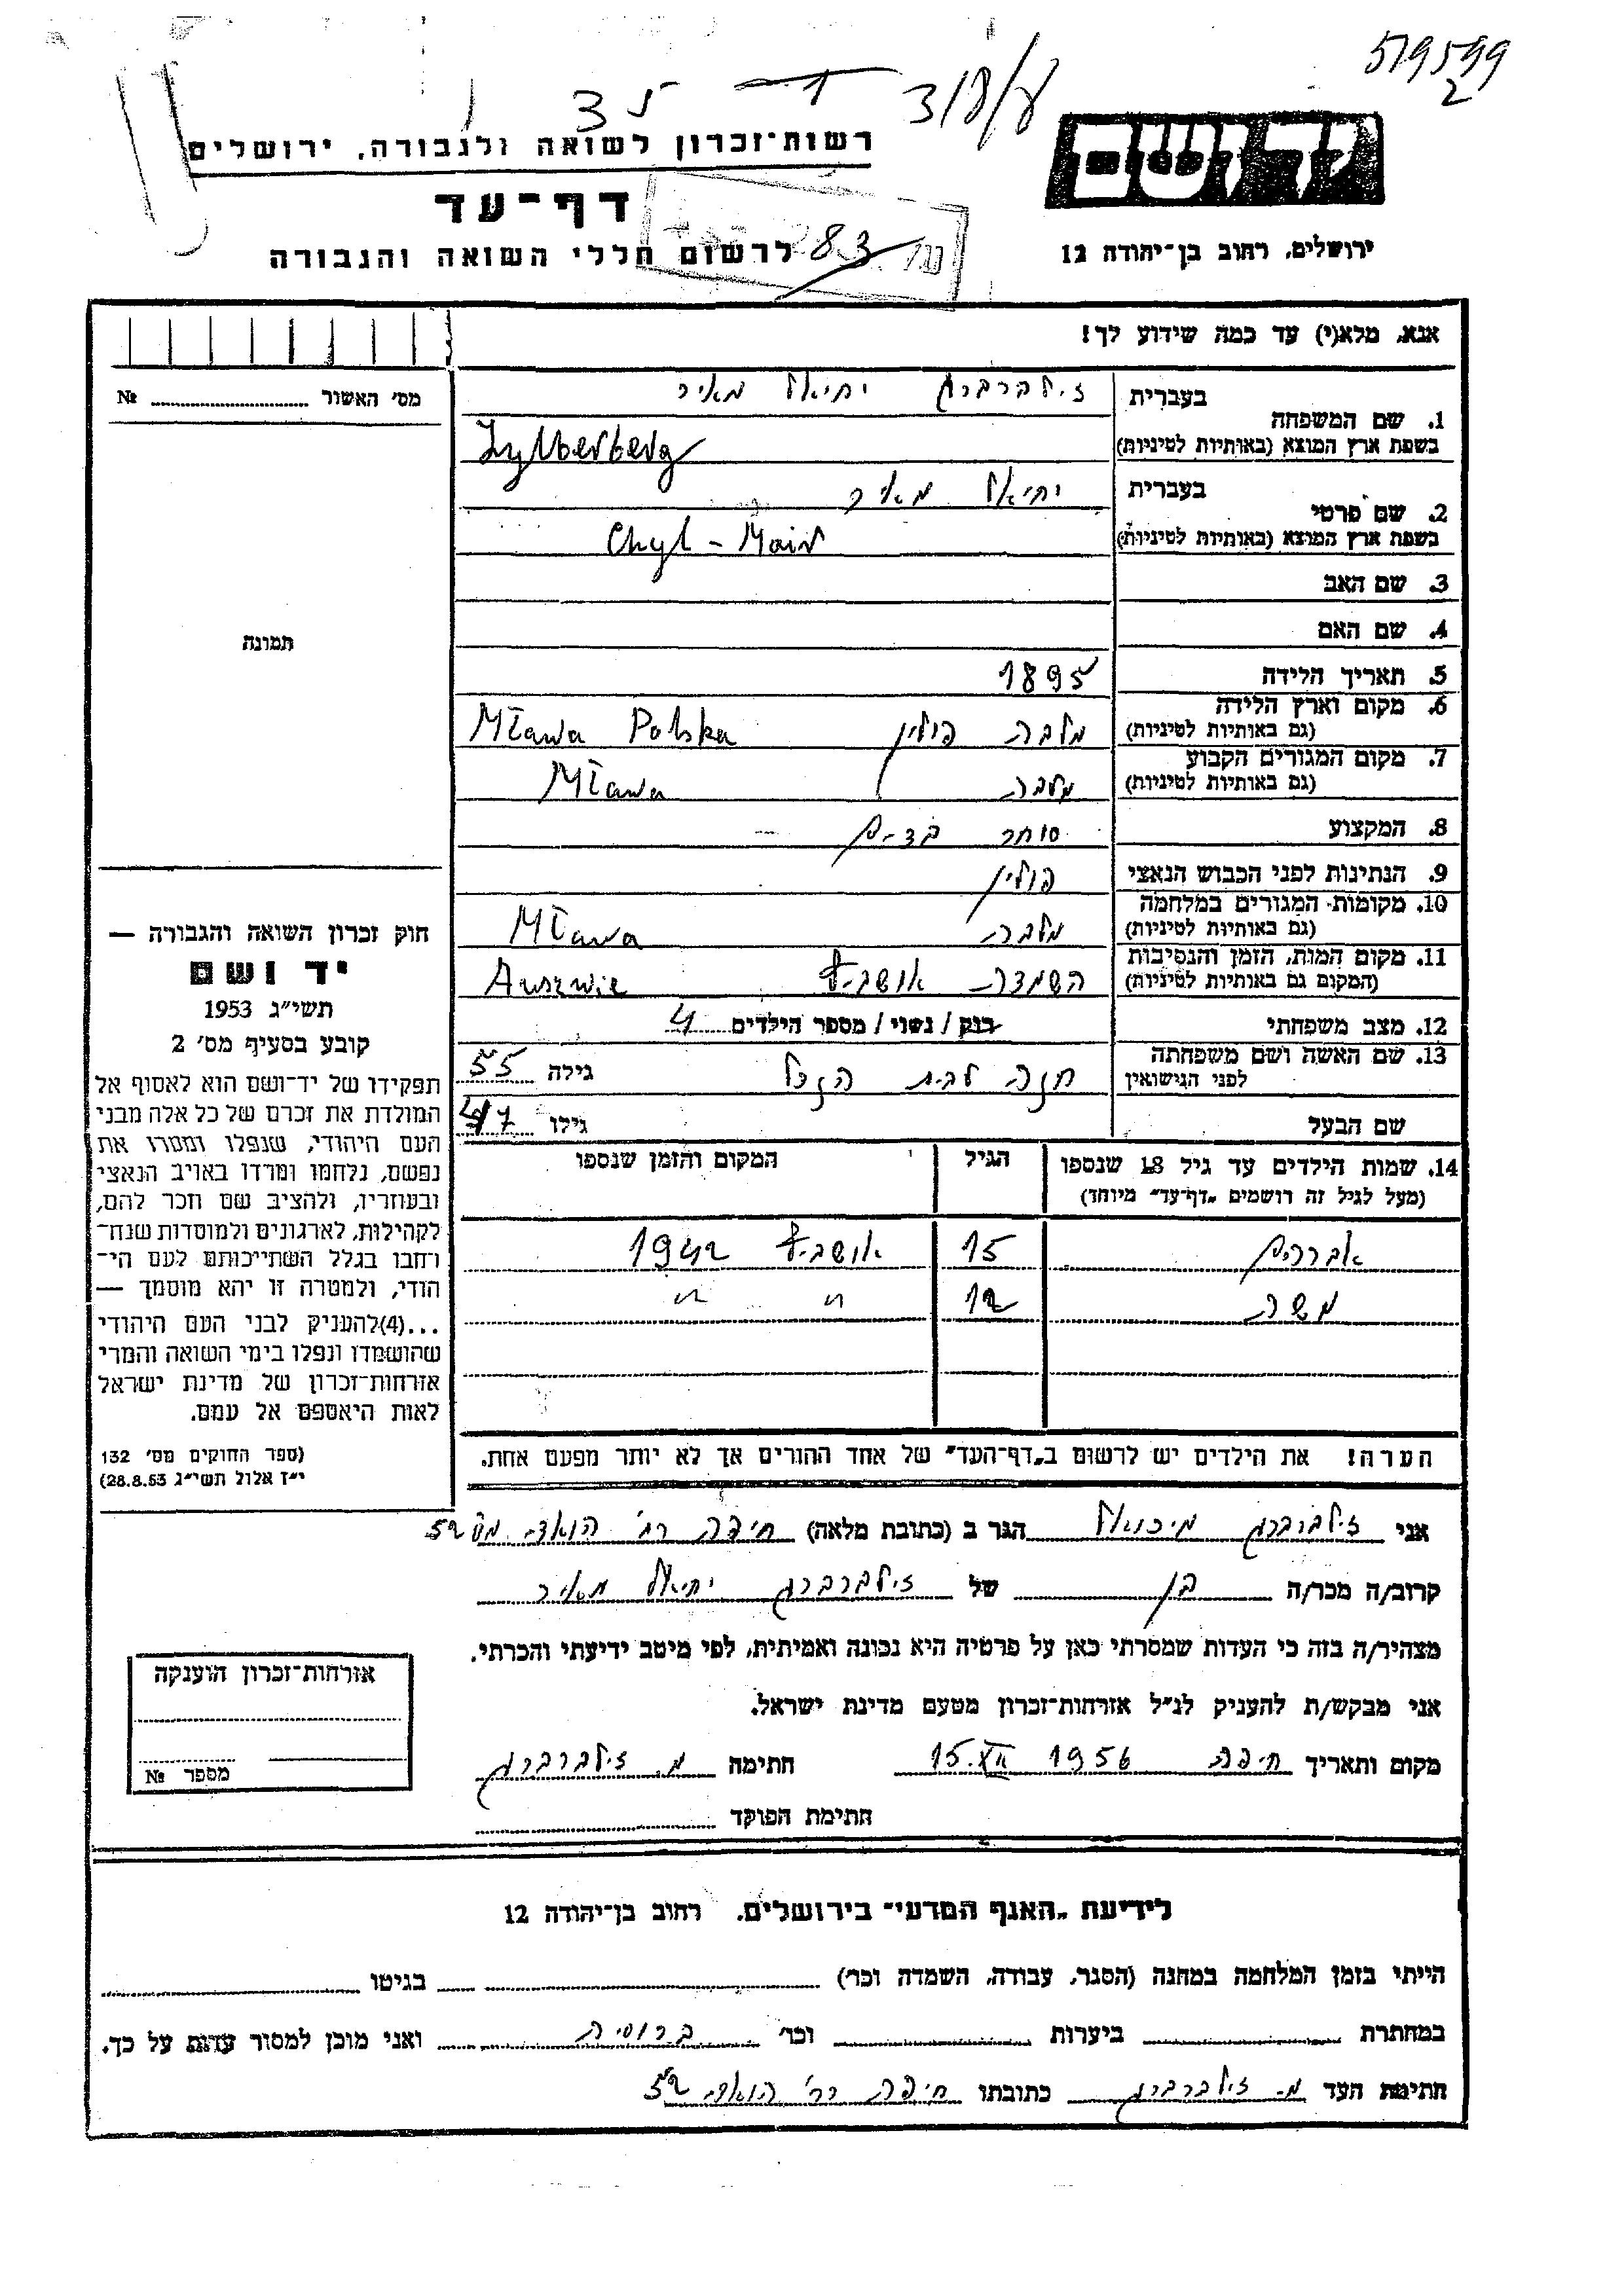 519599
2
35
3/8/8
רשות־זכרון לשואה ולגבורה, ירושלים
ידושם
דף־עד
לרשום חללי השואה והגבורה
83
ירושלים, רחוב בן־יהודה 12
אנא, מלא(י) עד כמה שידוע לך!
מס' האשור № 
1. שם המשפחה בעברית זילברברג יחיאל מאיר
בשפת ארץ המוצא (באותיות לטיניות) Zylberberg
2. שם פרטי בעברית יחיאל מאיר
בשפת ארץ המוצא (באותיות לטיניות) Chyl - Mair
3. שם האב
4. שם האם
תמונה
5. תאריך הלידה 1895
6. מקום וארץ הלידה
(גם באותיות לטיניות) מלבה פולין Mława Polska
7. מקום המגורים הקבוע
(גם באותיות לטיניות) מלבה Mława
8. המקצוע סוחר בדים
9. הנתינות לפני הכבוש הנאצי פולין
10. מקומות המגורים במלחמה
(גם באותיות לטיניות) מלבה Mława
11. מקום המות, הזמן והנסיבות
(המקום גם באותיות לטיניות) השמדה אושביץ Auszwic
12. מצב משפחתי רוק / נשוי / מספר הילדים 4
13. שם האשה ושם משפחתה
לפני הנישואין חנה לבית גילה 55
שם הבעל גילו 47
14. שמות הילדים עד גיל 18 שנספו הגיל המקום והזמן שנספו
(מעל לגיל זה רושמים "דף־עד" מיוחד)
אברהם 15 אושביץ 1942
משה 12 " "
הערה! את הילדים יש לרשום ב"דף־העד" של אחד ההורים אך לא יותר מפעם אחת.
חוק זכרון השואה והגבורה —
יד ושם
תשי"ג 1953
קובע בסעיף מס' 2
תפקידו של יד־ושם הוא לאסוף אל
המולדת את זכרם של כל אלה מבני
העם היהודי, שנפלו ומסרו את
נפשם, נלחמו ומרדו באויב הנאצי
ובעוזריו, ולהציב שם וזכר להם,
לקהילות, לארגונים ולמוסדות שנח־
רחבו בגלל השתייכותם לעם הי־
הודי, ולמטרה זו יהא מוסמך —
...(4)להעניק לבני העם היהודי
שהושמדו ונפלו בימי השואה והמרי
אזרחות־זכרון של מדינת ישראל
לאות היאספם אל עמם.
(ספר החוקים מס' 132
י"ז אלול תשי"ג 28.8.53)
אני זילברברג מיכאל הגר ב (כתובת מלאה) חיפה רח' הואדי מס 52
קרוב/ה מכר/ה בן של זילברברג יחיאל מאיר
מצהיר/ה בזה כי העדות שמסרתי כאן על פרטיה היא נכונה ואמיתית, לפי מיטב ידיעתי והכרתי.
אני מבקש/ת להעניק לנ"ל אזרחות־זכרון מטעם מדינת ישראל.
מקום ותאריך חיפה 15.XII 1956 חתימה מ. זילברברג
חתימת הפוקד
אזרחות־זכרון הוענקה
מספר №
לידיעת "האגף המדעי" בירושלים, רחוב בן־יהודה 12
הייתי בזמן המלחמה במחנה (הסגר, עבודה, השמדה וכר') בגיטו
במחתרת ביערות וכר' ברוסיה ואני מוכן למסור עדות על כך.
חתימת העד מ. זילברברג כתובתו חיפה רח' הואדי 52